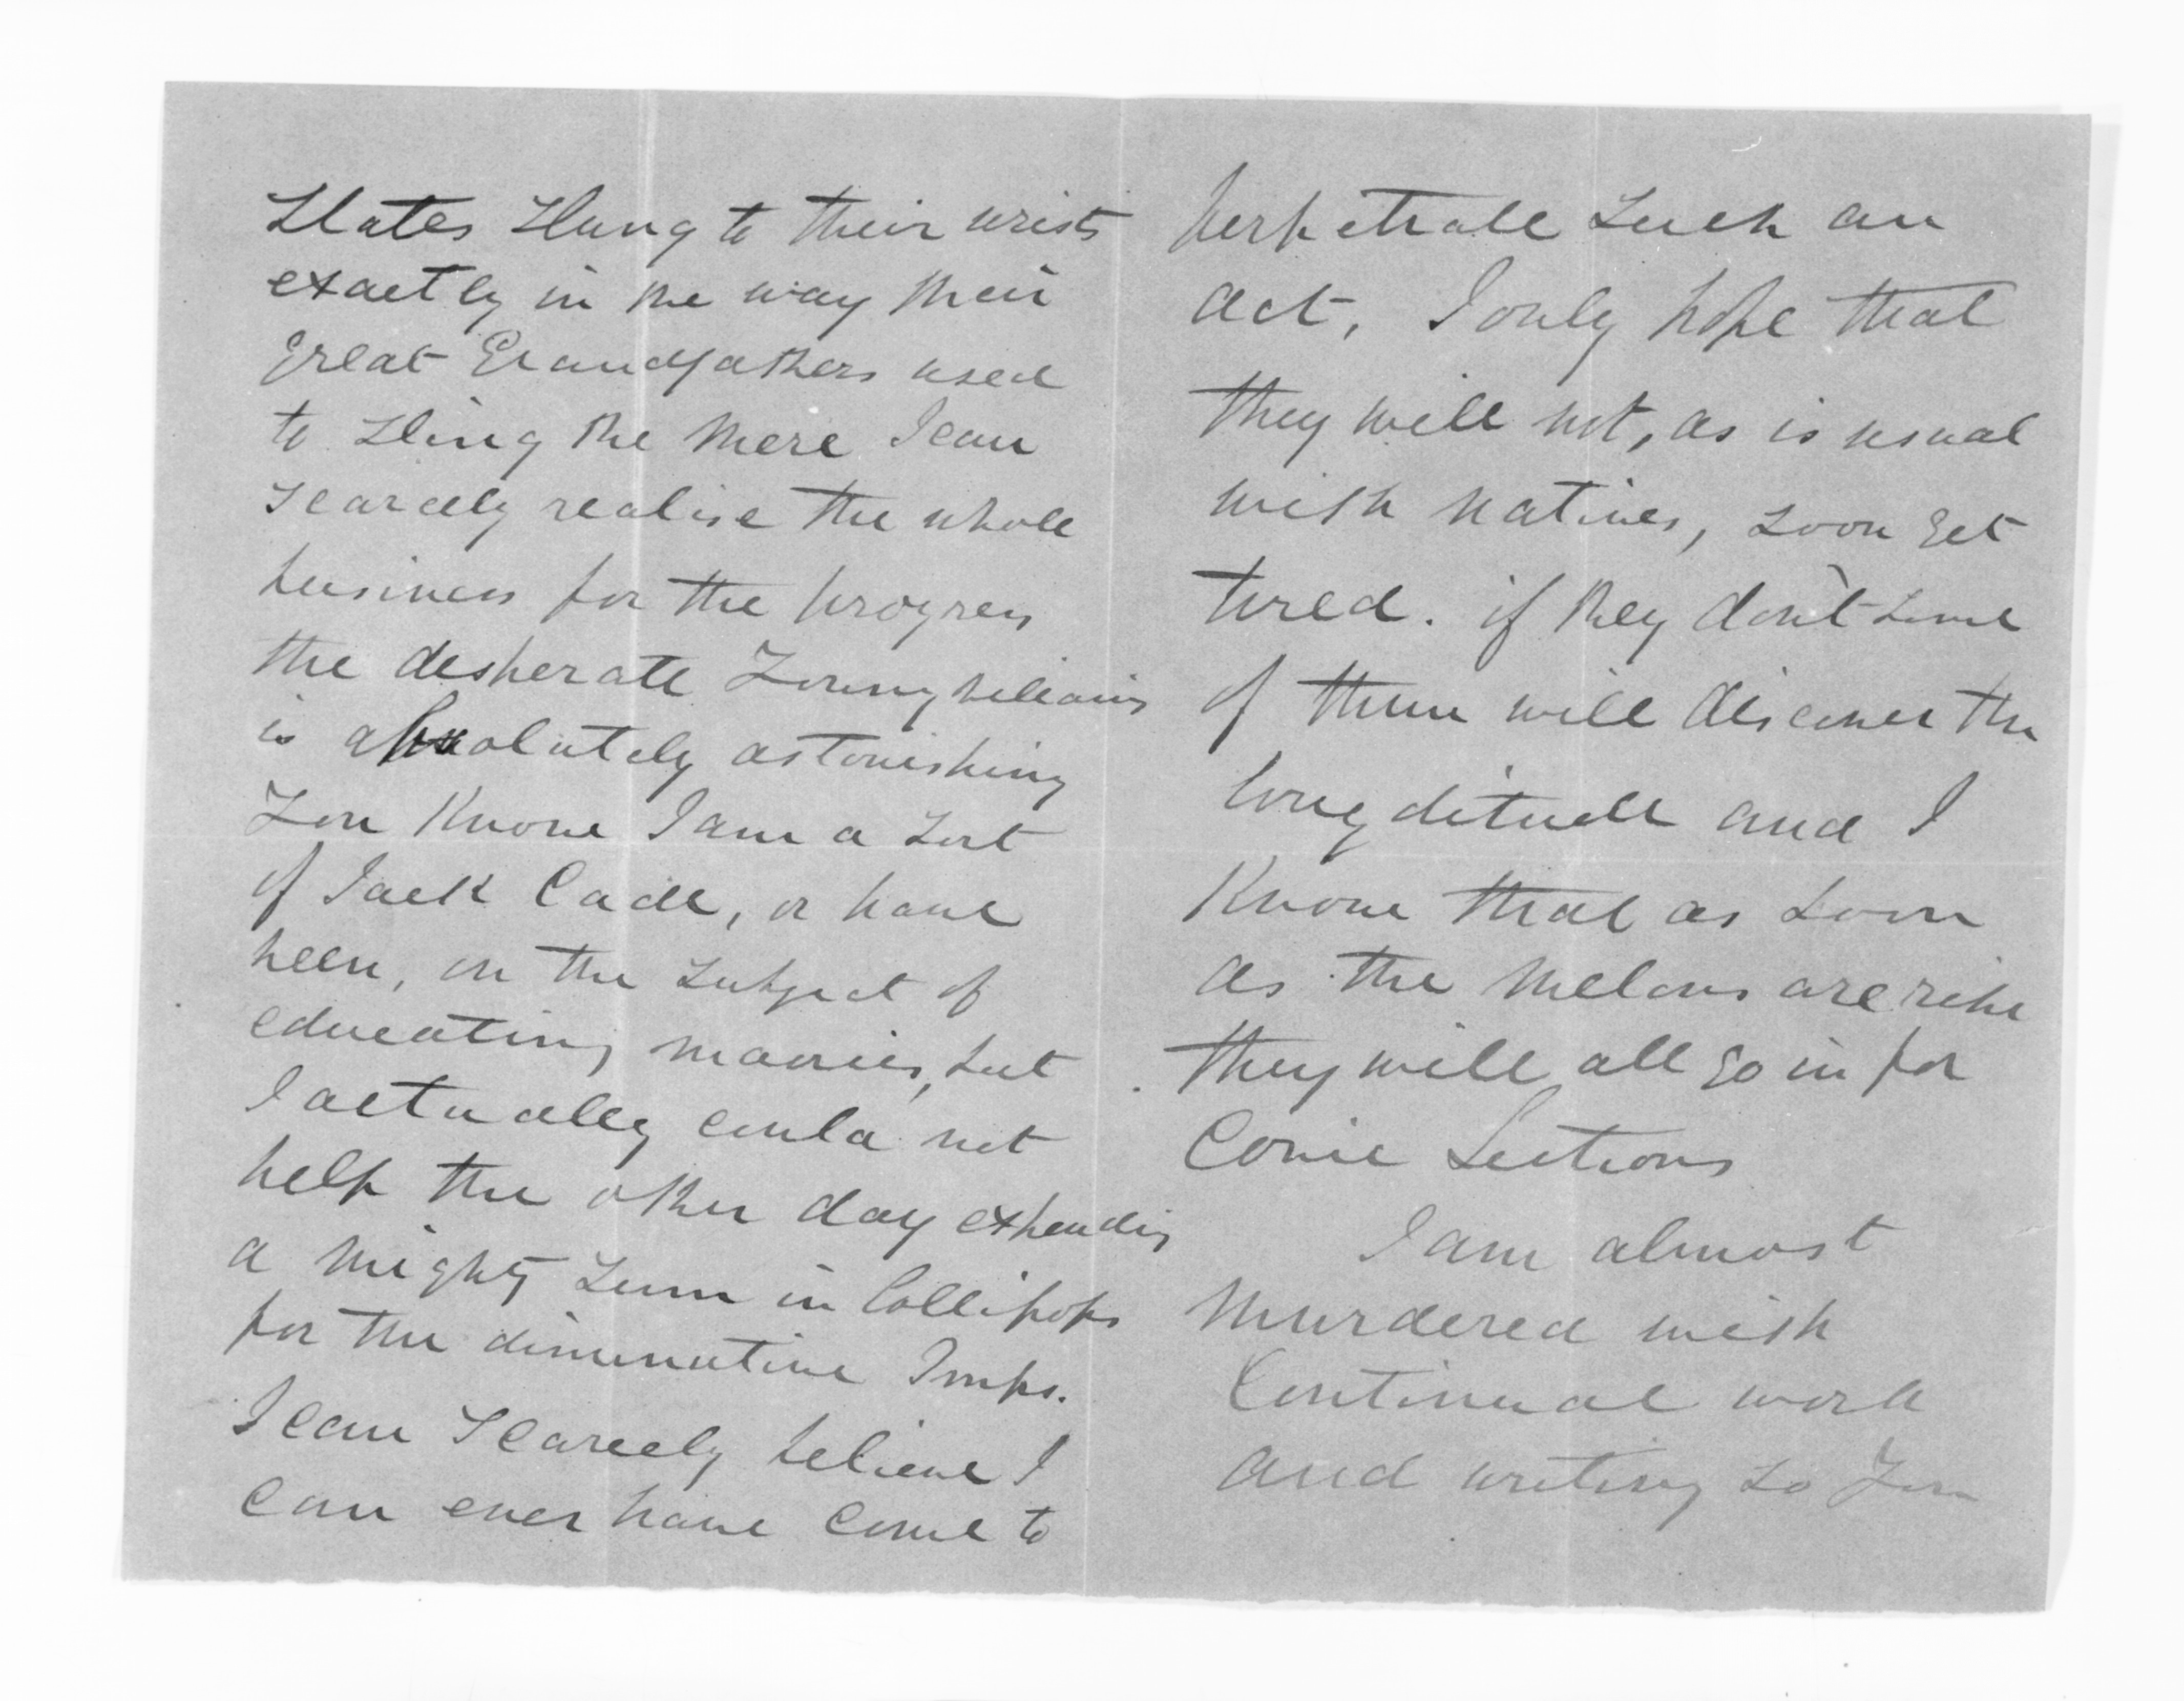 Slates slung to their wrists
exactly in the way their
great Grandfathers used
to sling the mere I can
scarcely realise the whole
business for the progress
the desperate Young villains
is absolutely astonishing
You Know I am a sort
of Jack Cade, or have
been, on the subject of
educating maories, but
I actually could not
help the other day expending
a mighty sum in Lollipops
for the diminutive Imps.
I can scarcely believe I
can ever have come to
perpetrate such an
act, I only hope that
they will not, as is usual
with natives, soon get
tired. if they don't some
of them will discover the
longditude and I
Know that as soon
as the melons are ripe
they will all go in for
Conic Sections
I am almost
murdered with
Continual work
and writing so You